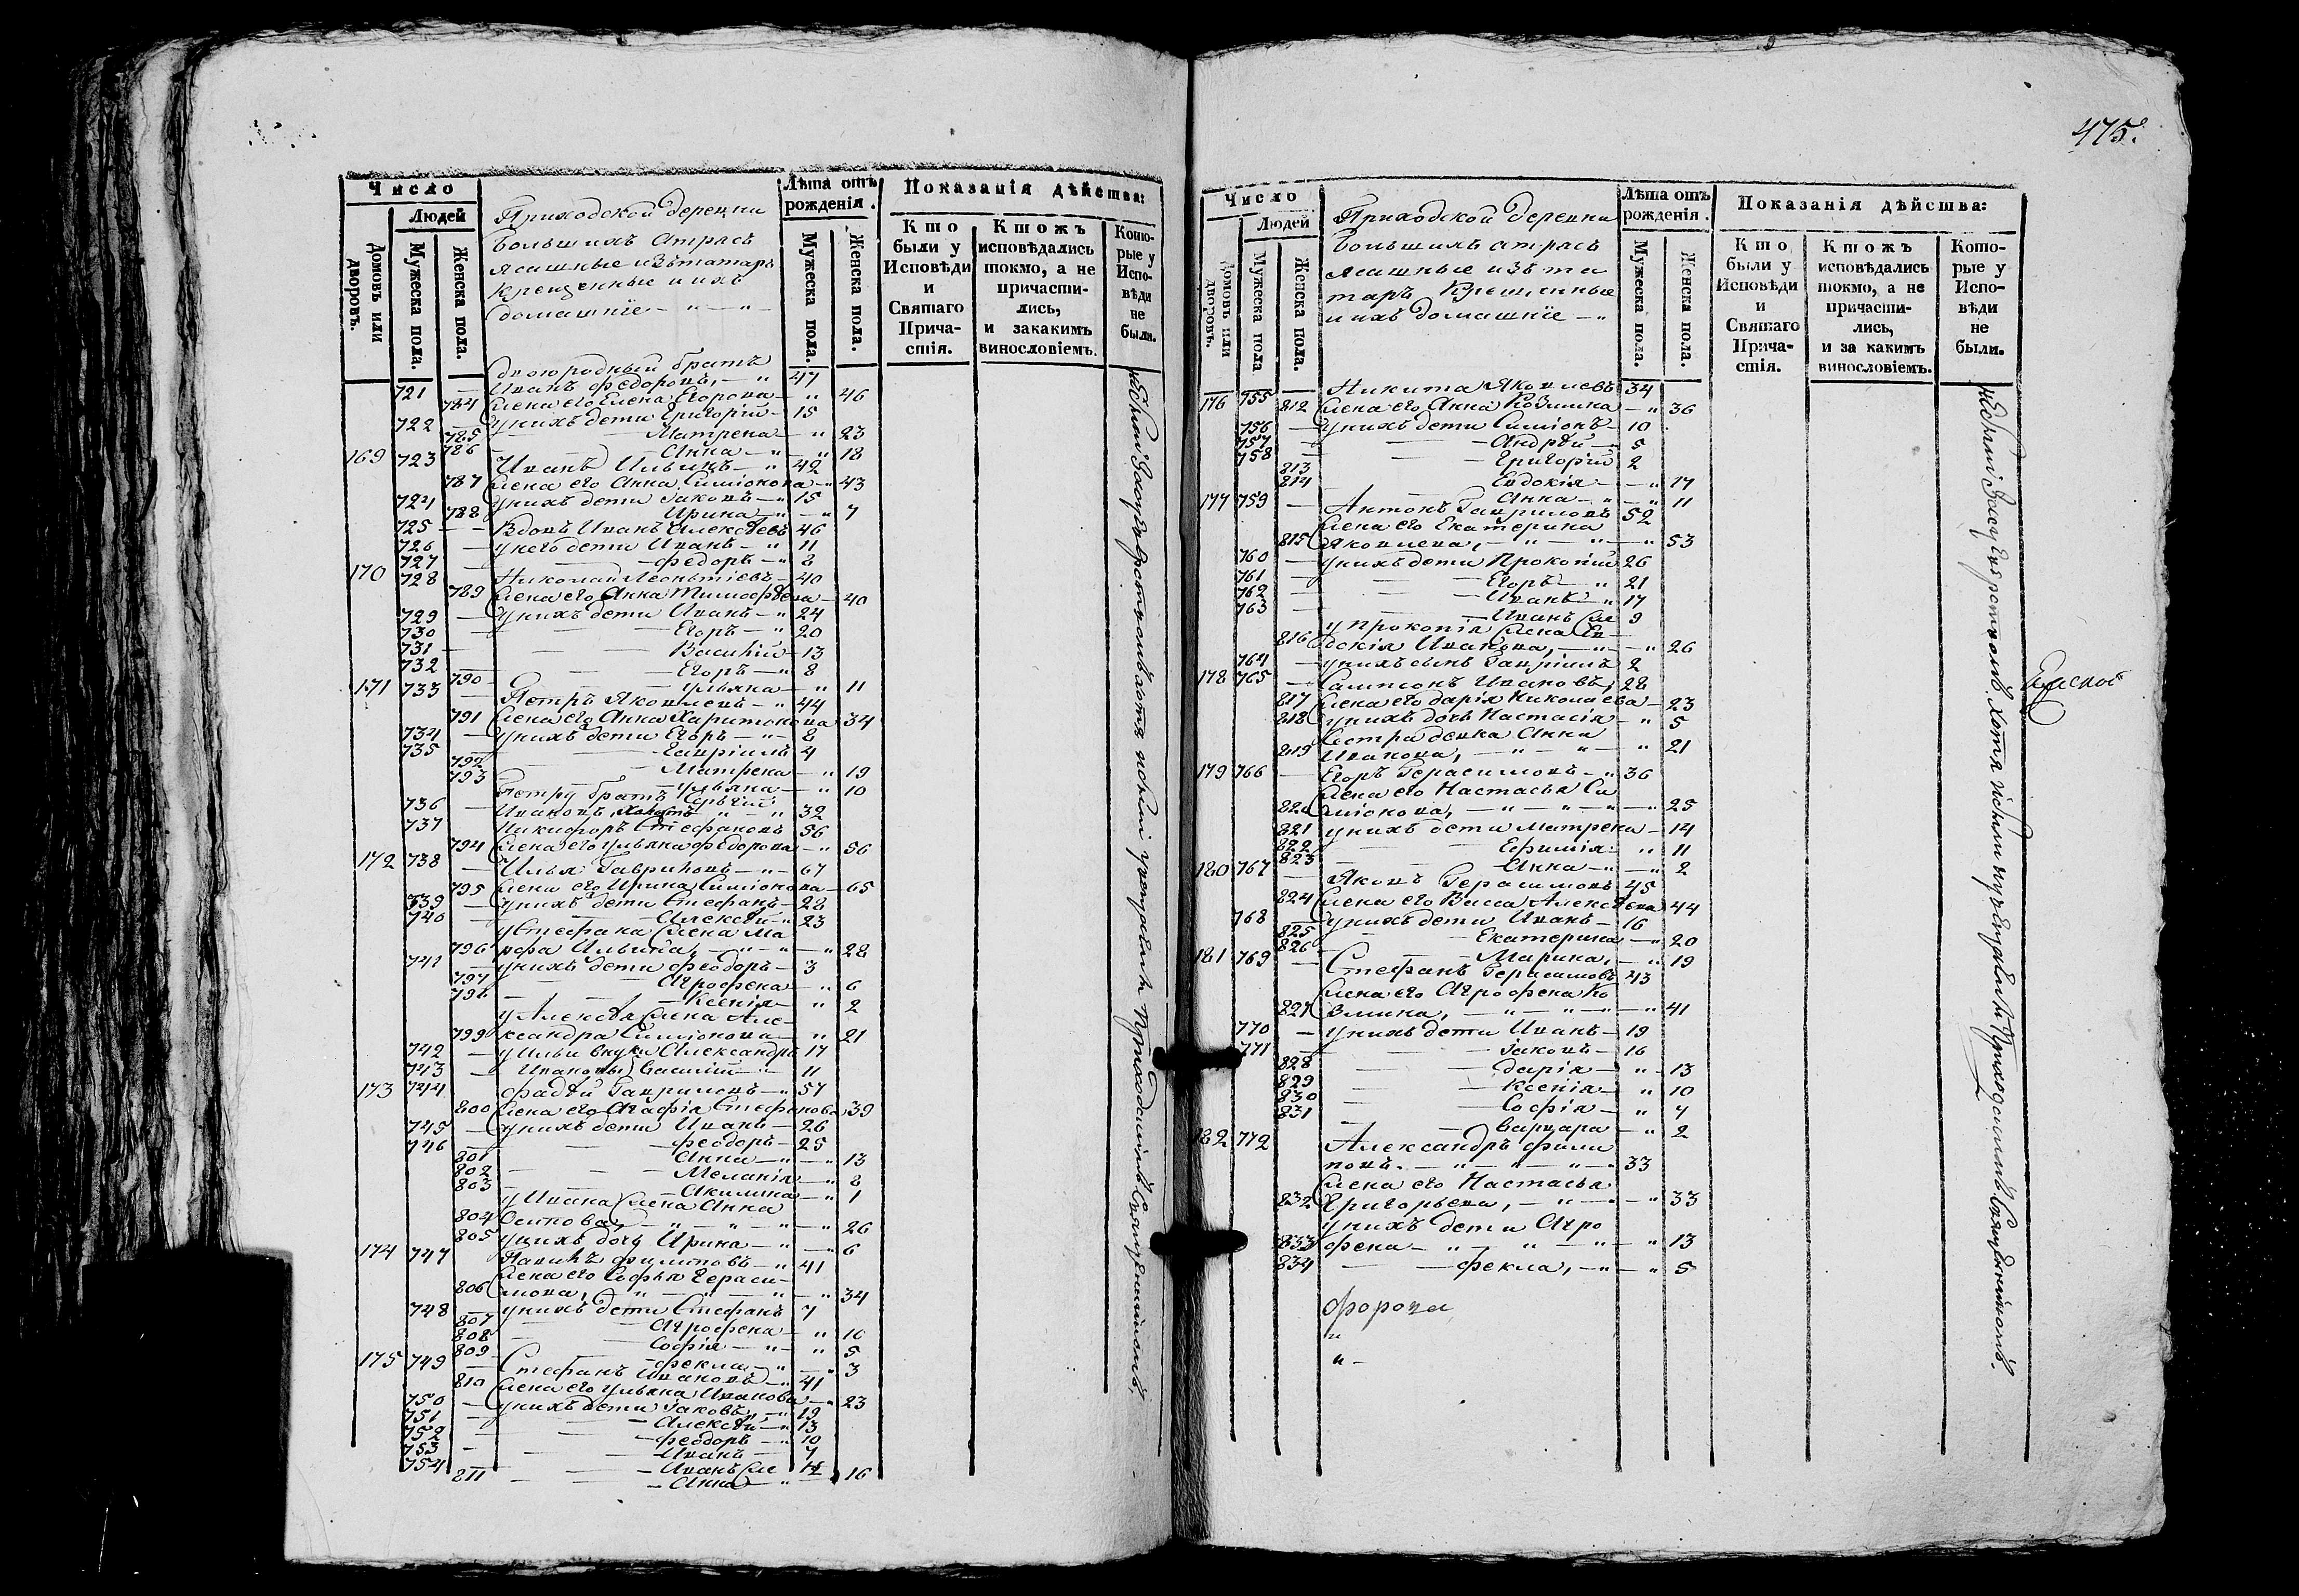 475.
Число
Людей
Домовъ или дворовъ.
Мужеска пола.
Женска пола.
Приходской деревни
Большихъ Атрасъ
ясашные изъ татаръ
крещенные и ихъ
домашніе — " — " —
Лѣта отъ рожденія.
Мужеска пола.
Женска пола.
Показанія дѣйства:
Кто были у Исповѣди и Святаго Причастія.
Ктожъ исповѣдались токмо, а не причастились, и закакимъ винословіемъ.
Которые у Исповѣди не были.
двоюродный братъ
721 — Иванъ Федоровъ, — " 47
784 Жена его Елена Егорова — " 46
722 — у нихъ дети Григорій — 15
785 — Матрена — " 23
786 — Анна — " — " 18
169 723 Иванъ Ильинъ — " 42
787 Жена его Анна Симіонова — " 43
724 у нихъ дети Іаковъ — " 15
788 Ирина — " — " 7
725 — — Вдовъ Иванъ Алексѣевъ 46
726 — у него дети Иванъ — " 11
727 — — Федоръ — " 8
170 728 Николай Леонтіевъ — 40
789 Жена его Анна Тимофѣева — 40
729 — у нихъ дети Иванъ — " 24
730 — Егоръ — " 20
731 — Василій — 13
732 — Егоръ — " 8
790 — Ульяна — " 11
171 733 — Петръ Яковлевъ — " 44
791 Жена его Анна Харитонова 34
734 — у нихъ дети Егоръ — " — 8
735 — Гавріилъ 4
792 — Матрена — " 19
793 — Ульяна — " 10
Петру братъ Сергій
736 — Ивановъ, " — " 32
737 Никифоръ Стефановъ 56
794 Жена его Ульяна Федорова — " 56
172 738 — Илья Гавриловъ — " — 67
795 Жена его Ирина Симіонова — 65
739 — у нихъ дети Стефанъ — 28
740 — Алексѣй — " 23
у Стефана Жена Ма
796 рфа Ильина, — " — " — " 28
741 — у нихъ дети Феодоръ — 3
797 — Агрофена — " 6
798 — Ксенія — " 2
у Алексѣя Жена Але-
799 ксандра Симіонова — " 21
742 — у Ильи внуки Александръ 17
743 — Ивановы Василій — " 11
173 744 Фадѣй Гавриловъ — " 57
800 Жена его Агафія Стефанова 39
745 — у нихъ дети Иванъ — 26
746 — Феодоръ — 25
801 Анна — " — " 13
802 — Меланія — " 8
803 — Акилина — " 1
у Ивана Жена Анна
804 Осипова, — " — " — " — " 26
805 у нихъ дочь Ирина — " — " 6
174 747 Павилъ Филиповъ — " 41
Жена его Софья Гераси-
806 мова, — " — " — " — " 34
748 — у нихъ дети Стефанъ 7
807 — Агрофена — " 10
808 — Софія — " — " 5
809 — Фекла — " — " 3
175 749 — Стефанъ Ивановъ — " 41
810 Жена его Ульяна Иванова — " 23
750 — у нихъ дети Іаковъ, — " 19
751 — Алексѣй — " 13
752 — Феодоръ — " 10
753 — Иванъ — 7
754 — Иванъ же
811 — Анна — " 16
Число
Людей
Домовъ или дворовъ.
Мужеска пола
Женска пола.
Приходской деревни
Большихъ Атрасъ
ясашные изъ та
таръ Крещенные
и ихъ домашніе — "
Лѣта отъ рожденія.
Мужеска пола.
Женска пола.
Показанія дѣйства:
Кто были у Исповѣди и Святаго Причастія.
Ктожъ исповѣдались токмо, а не причастились, и за какимъ винословіемъ.
Которые у Исповѣди не были.
176 755 Никита Яковлевъ 34
812 Жена его Анна Козмина — " 36
756 — у нихъ дети Симіонъ — 10
757 — Андрѣй — " 5
758 — Григорій 2
813 Евдокія — " 17
814 — Анна — " — " 11
177 759 — Антонъ Гавриловъ 52
Жена его Екатерина
815 Яковлева, — " — " — " 53
760 — у нихъ дети Прокопій 26
761 — Егоръ — " 21
762 — Иванъ — " 17
763 — Иванъ же 9
у Прокопія Жена Ев-
816 докія Иванова, — " — " 26
764 — у нихъ сынъ Гавріилъ 2
178 765 — Сампсонъ Ивановъ, 28
817 Жена его Дарія Николаева — 23
818 у нихъ дочь Настасія — " 5
Сестра девка Анна
819 Иванова, — " — " — " 21
179 766 — Егоръ Герасимовъ — " 36
Жена его Настасья Си
820 міонова, — " — " — " — " 25
821 у нихъ дети Матрена — 14
822 — Ефимія — " 11
823 — Анна — " — " 2
180 767 — Яковъ Герасимовъ 45
824 Жена его Васса Алексѣева 44
768 — у нихъ дети Иванъ — 16
825 — Екатерина — " 20
826 — Марина, — " 19
181 769 — Стефанъ Герасимовъ 43
Жена его Агрофена Ко
827 змина, — " — " — " — " 41
770 — у нихъ дети Иванъ — 19
771 — Іаковъ — 16
828 — Дарія — " — 13
829 — Ксенія — " 10
830 — Софія — " 7
831 — Варвара — " 2
182 772 Александръ Фили
повъ. — " — " — " — 33
Жена его Настасья
832 Григорьева, — " — " — " 33
у нихъ дети Агро
833 фена — " — " — " — " 13
834 — Фекла, — " — " 5